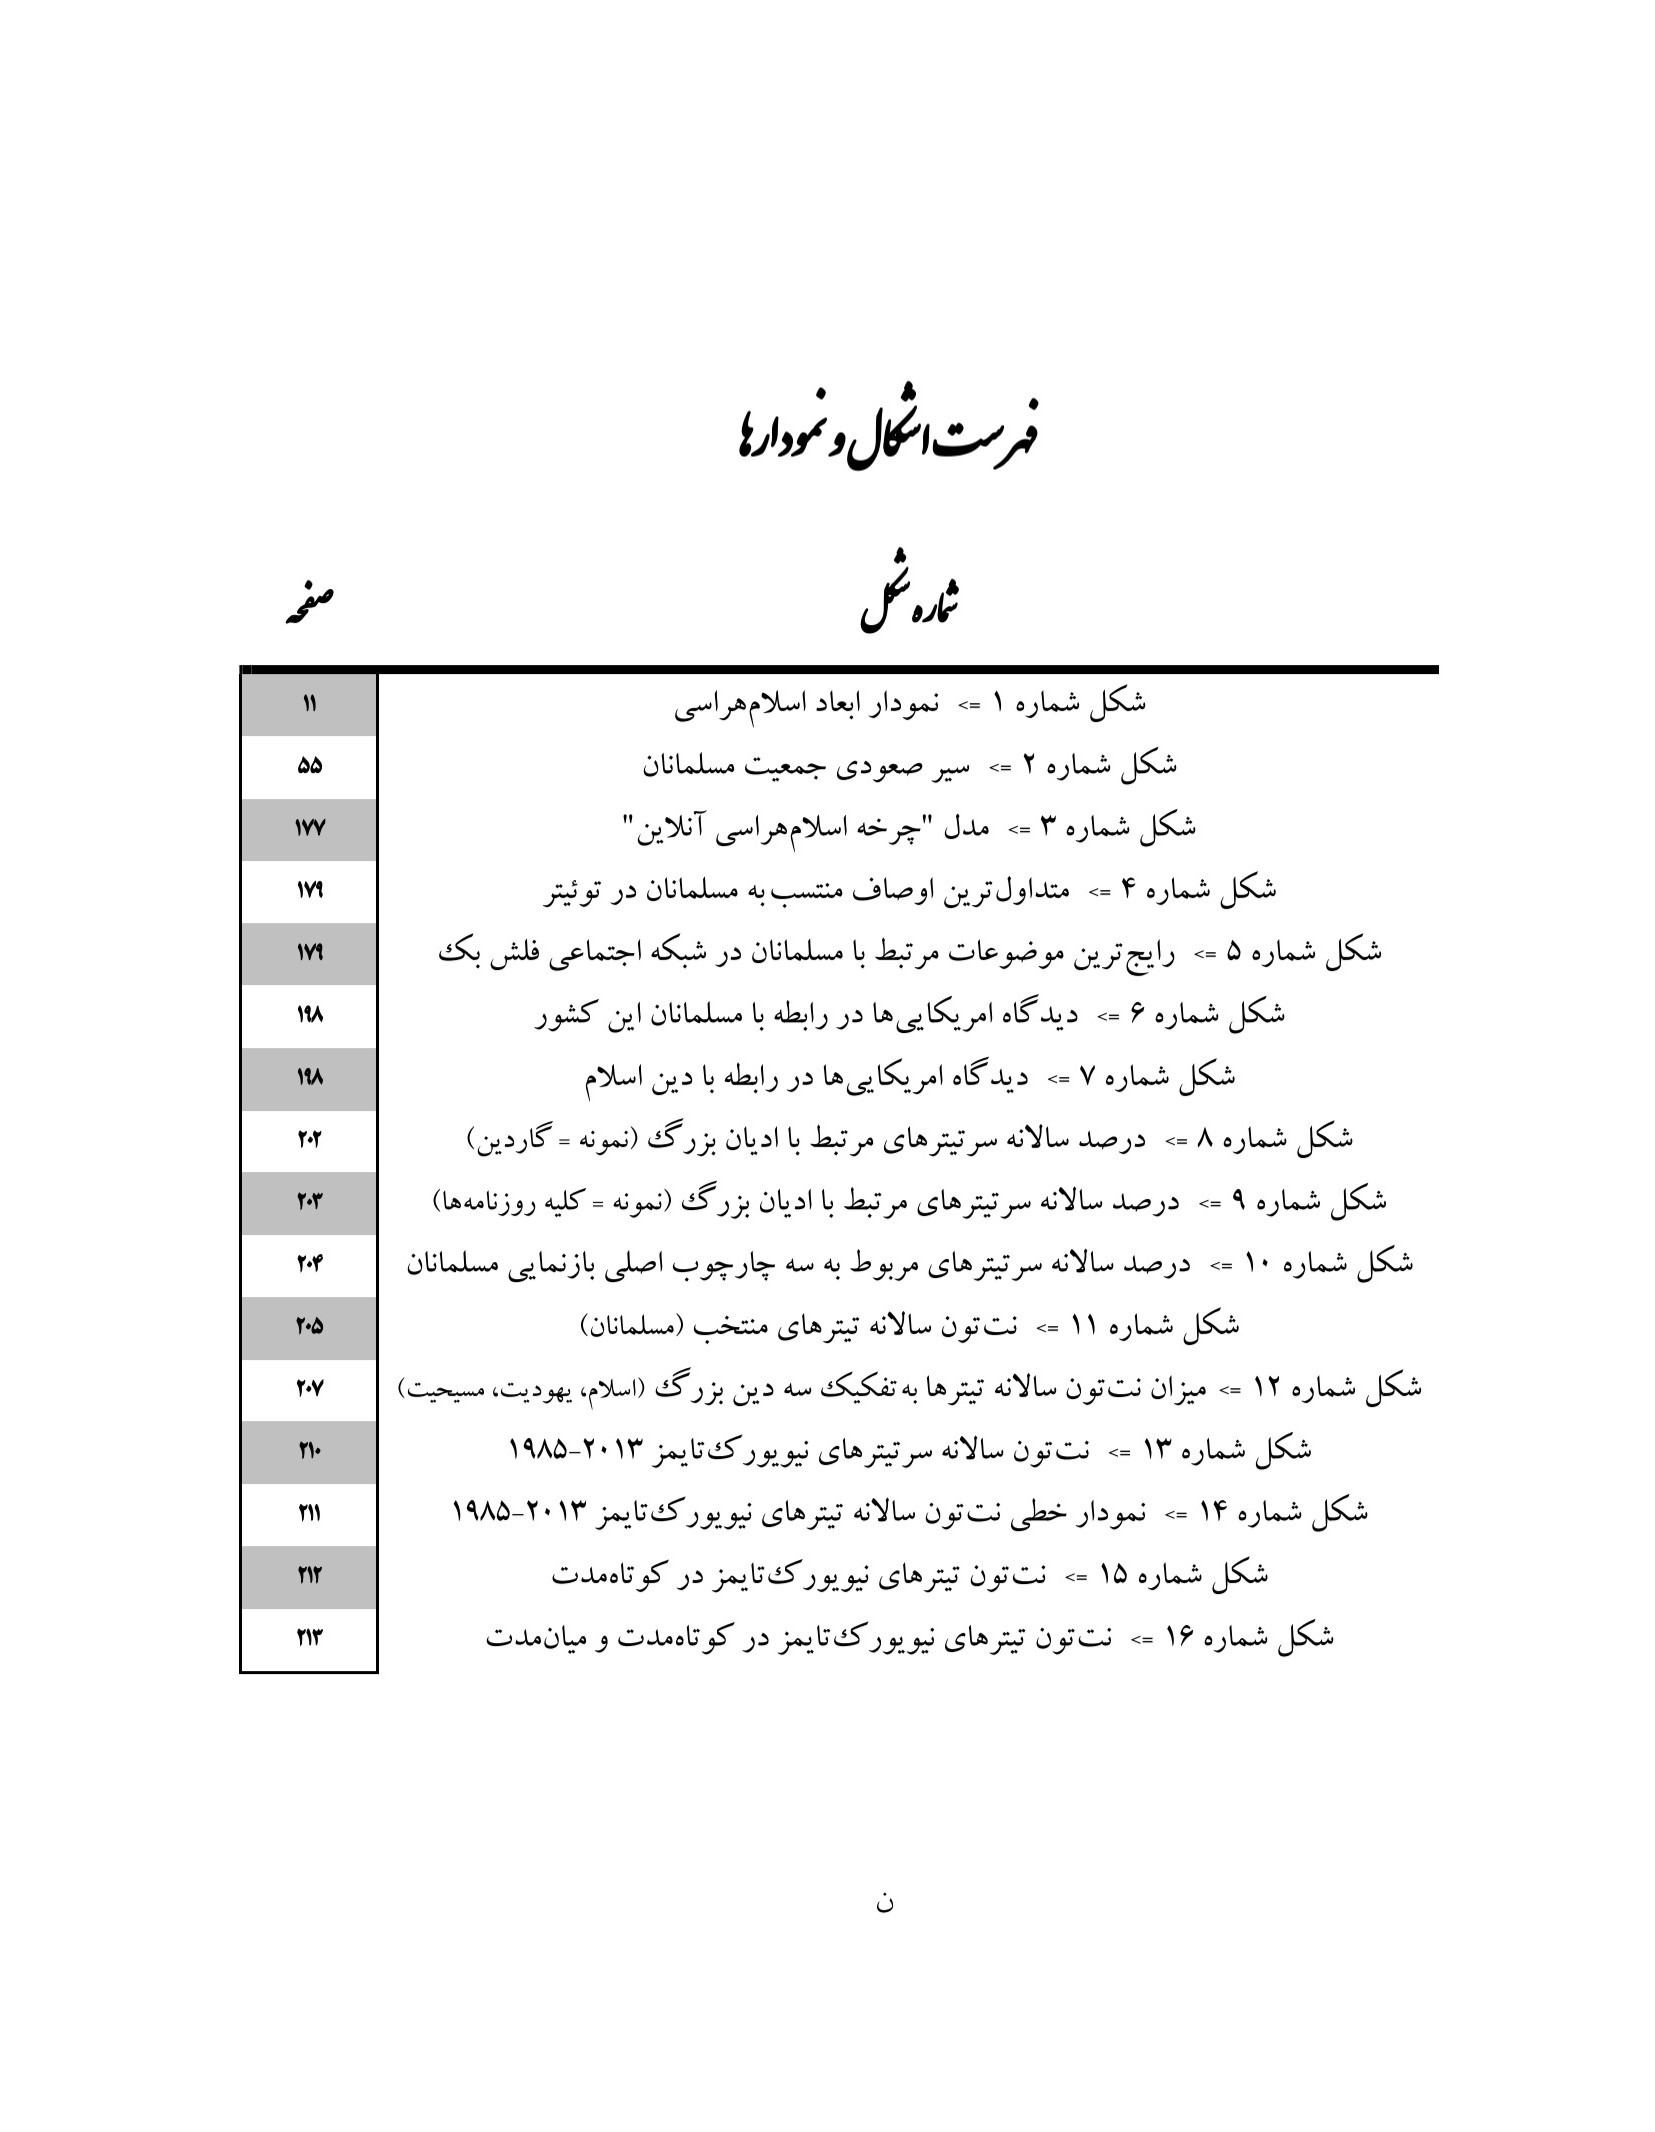 فهرست اشکال و نمودارها
شماره شکل صفحه
شکل شماره ۱ => نمودار ابعاد اسلام‌هراسی ۱۱
شکل شماره ۲ => سیر صعودی جمعیت مسلمانان ۵۵
شکل شماره ۳ => مدل "چرخه اسلام‌هراسی آنلاین" ۱۷۷
شکل شماره ۴ => متداول‌ترین اوصاف منتسب‌به مسلمانان در توئیتر ۱۷۹
شکل شماره ۵ => رایج‌ترین موضوعات مرتبط با مسلمانان در شبکه اجتماعی فلش بک ۱۷۹
شکل شماره ۶ => دیدگاه امریکایی‌ها در رابطه با مسلمانان این کشور ۱۹۸
شکل شماره ۷ => دیدگاه امریکایی‌ها در رابطه با دین اسلام ۱۹۸
شکل شماره ۸ => درصد سالانه سرتیترهای مرتبط با ادیان بزرگ (نمونه = گاردین) ۲۰۲
شکل شماره ۹ => درصد سالانه سرتیترهای مرتبط با ادیان بزرگ (نمونه = کلیه روزنامه‌ها) ۲۰۳
شکل شماره ۱۰ => درصد سالانه سرتیترهای مربوط به سه چارچوب اصلی بازنمایی مسلمانان ۲۰۴
شکل شماره ۱۱ => نت‌تون سالانه تیترهای منتخب (مسلمانان) ۲۰۵
شکل شماره ۱۲ => میزان نت‌تون سالانه تیترها به‌تفکیک سه دین بزرگ (اسلام، یهودیت، مسیحیت) ۲۰۷
شکل شماره ۱۳ => نت‌تون سالانه سرتیترهای نیویورک‌تایمز ۲۰۱۳-۱۹۸۵ ۲۱۰
شکل شماره ۱۴ => نمودار خطی نت‌تون سالانه تیترهای نیویورک‌تایمز ۲۰۱۳-۱۹۸۵ ۲۱۱
شکل شماره ۱۵ => نت‌تون تیترهای نیویورک‌تایمز در کوتاه‌مدت ۲۱۲
شکل شماره ۱۶ => نت‌تون تیترهای نیویورک‌تایمز در کوتاه‌مدت و میان‌مدت ۲۱۳
ن